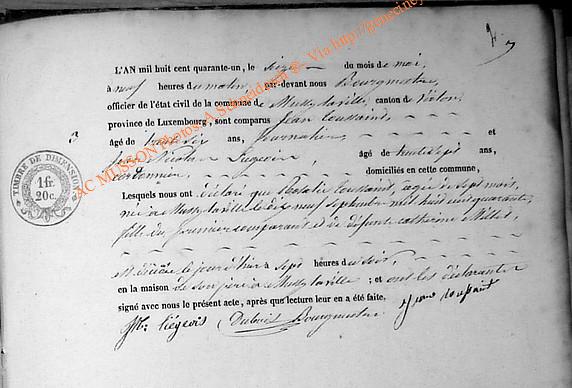 L'AN mil huit cent quarante-un, le seize du mois de mai,
à neuf heures du matin, par-devant nous Bourgmestre,
officier de l'état civil de la commune de Mussy-la-ville, canton de Virton,
province de Luxembourg, sont comparus Jean Toussaint,
3
âgé de ans, Journalier, et
Jean Nicolas âgé de trente sept ans,
cordonnier, domiciliés en cette commune,
Lesquels nous ont déclaré que Rosalie Toussaint, agée de sept mois,
née à Mussy-la-ville le dix neuf septembre mil huit cent quarante,
fille du premier comparant et de défunte catherine
est décédée le jour d'hier à sept heures du soir,
en la maison de son père à Mussy-la-ville; et ont les déclarants
signé avec nous le présent acte, après que lecture leur en a été faite.
liégeois Bourgmestre Jean toussaint
TIMBRE DE DIMENSION
1 fr.
20 c.
AC MUSSON Photos: A. Schneider © - Via http://geneciney